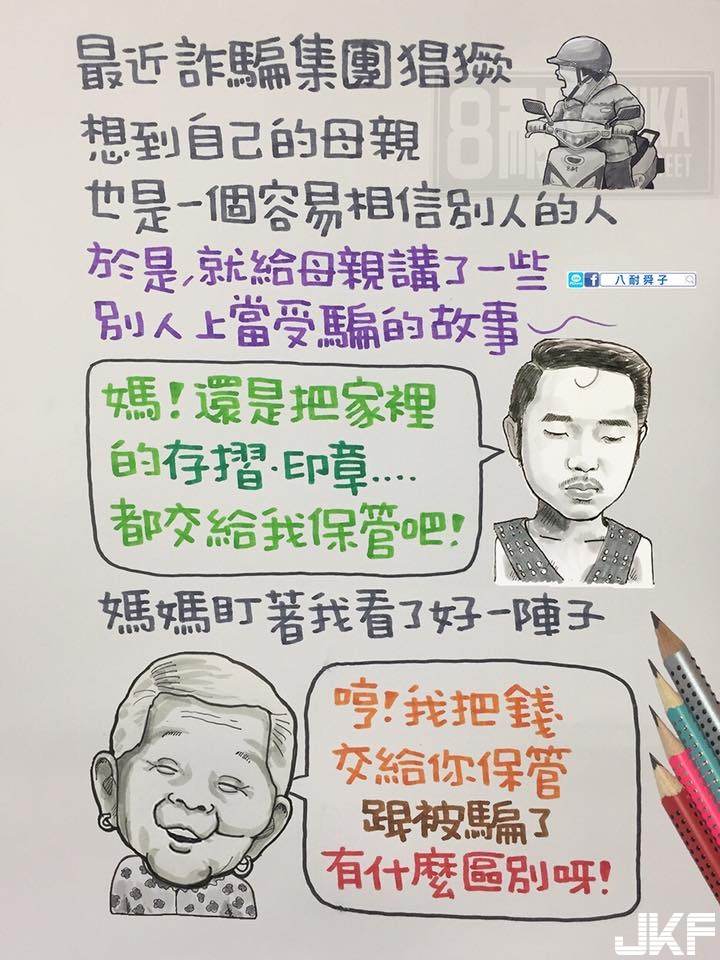 最近詐騙集團猖獗
想到自己的母親
也是一個容易相信別人的人
於是,就給母親講了一些
八耐舜子
別人上當受騙的故事~
媽!還是把家裡
的存摺.印章....
都交給我保管吧!
媽媽盯著我看了好一陣子
哼!我把錢
交給你保管
跟被騙了
有什麼區別呀!
JKF